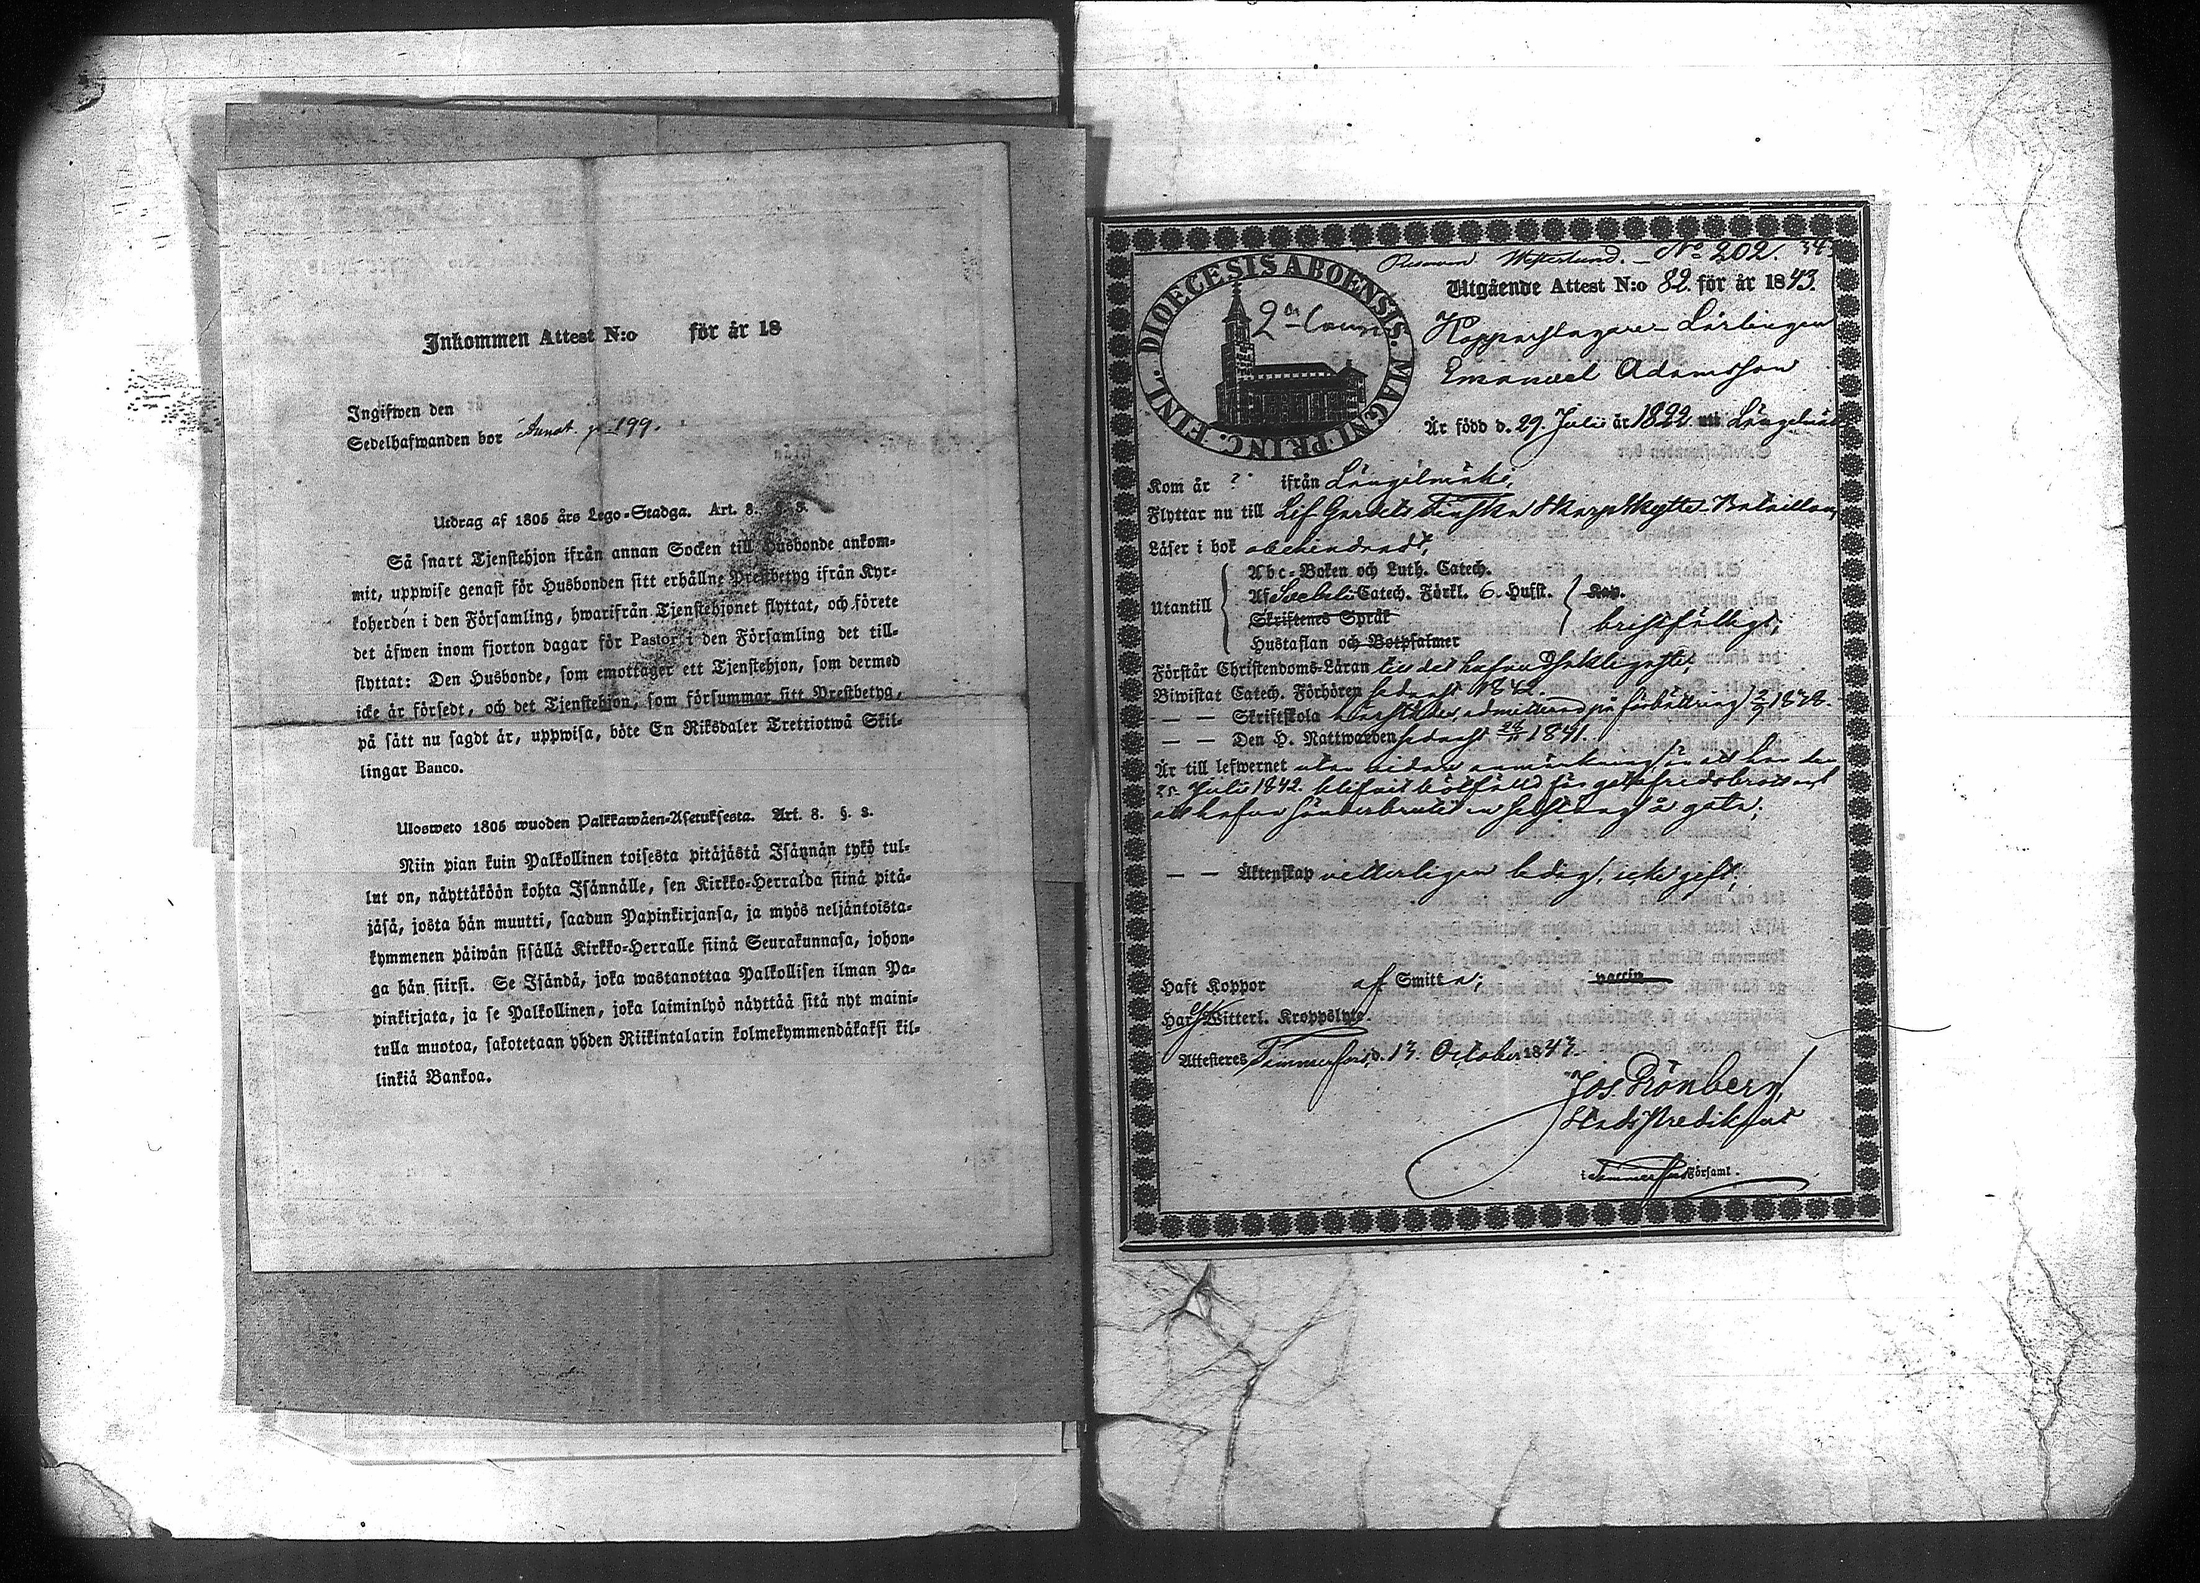 Inkommen Attest N:o för år 18
Ingifwen den
Sedelhafwanden bor Annot. p. 199.
Utdrag af 1805 års Lego-Stadga. Art. 8. §. 8.
Så snart Tjenstehjon ifrån annan Socken till Husbonde ankom-
mit, uppwise genast för Husbonden sitt erhållne Prestbetyg ifrån Kyr-
koherden i den Församling, hwarifrån Tjenstehjonet flyttat, och förete
det äfwen inom fjorton dagar för Pastor i den Församling det till-
flyttat: Den Husbonde, som emottager ett Tjenstehjon, som dermed
icke är försedt, och det Tjenstehjon, som försummar sitt Prestbetyg,
på sätt nu sagdt är, uppwisa, böte En Riksdaler Trettiotwå Skil-
lingar Banco.
Ulosweto 1805 wuoden Palkkawäen-Asetuksesta. Art. 8. §. 8.
Niin pian kuin Palkollinen toisesta pitäjästä Isännän tykö tul-
lut on, näyttäköön kohta Isännälle, sen Kirkko-Herralda siinä pitä-
jäsä, josta hän muutti, saadun Papinkirjansa, ja myös neljäntoista-
kymmenen päiwän sisällä Kirkko-Herralle siinä Seurakunnasa, johon-
ga hän siirsi. Se Isändä, joka wastanottaa Palkollisen ilman Pa-
pinkirjata, ja se Palkollinen, joka laiminlyö näyttää sitä nyt maini-
tulla muotoa, sakotetaan yhden Riikintalarin kolmekymmendäkaksi kil-
linkiä Bankoa.
Westerlund. — No 202. 34
DIOECESIS ABOENSIS. MAGNI PRINC. FINL.
2
Utgående Attest N:o 82. för år 1843.
Kopparslagare Lärlingen
Emanuel Adamsson
Är född d. 29. Juli år 1822 uti Längelmäki
Kom år ? ifrån Längelmäki,
Flyttar nu till Lif Gardets Finska Skarpskytte-Bataillon,
Läser i bok obehindradt,
Abc-Boken och Luth. Catech.
Utantill Af Svebeli Catech. Förkl. 6. Hufst. Kap.
Skriftenes Språk bristfälligt,
Hustaflan och Botpsalmer
Förstår Christendoms-Läran
Biwistat Catech. Förhören sednast 1842.
— — Skriftskola admitterad på förbättring 1838.
— — Den H. Nattwarden sednast 1841.
Är till lefwernet utan widare anmärkning än att han den
25 Juli 1842. blifwit bötfälld för gatufridsbrott
att hafva sönderbrutit en på gata;
— — Äktenskap vetterligen ledig, icke gift,
Haft Koppor af Smitta; vaccin
Har Witterl. Kroppslyte
Attesteres Tammerfors, d. 13. October 1843.
Jos. Grönberg,
Stads Predikant
i Tammerfors Församl.